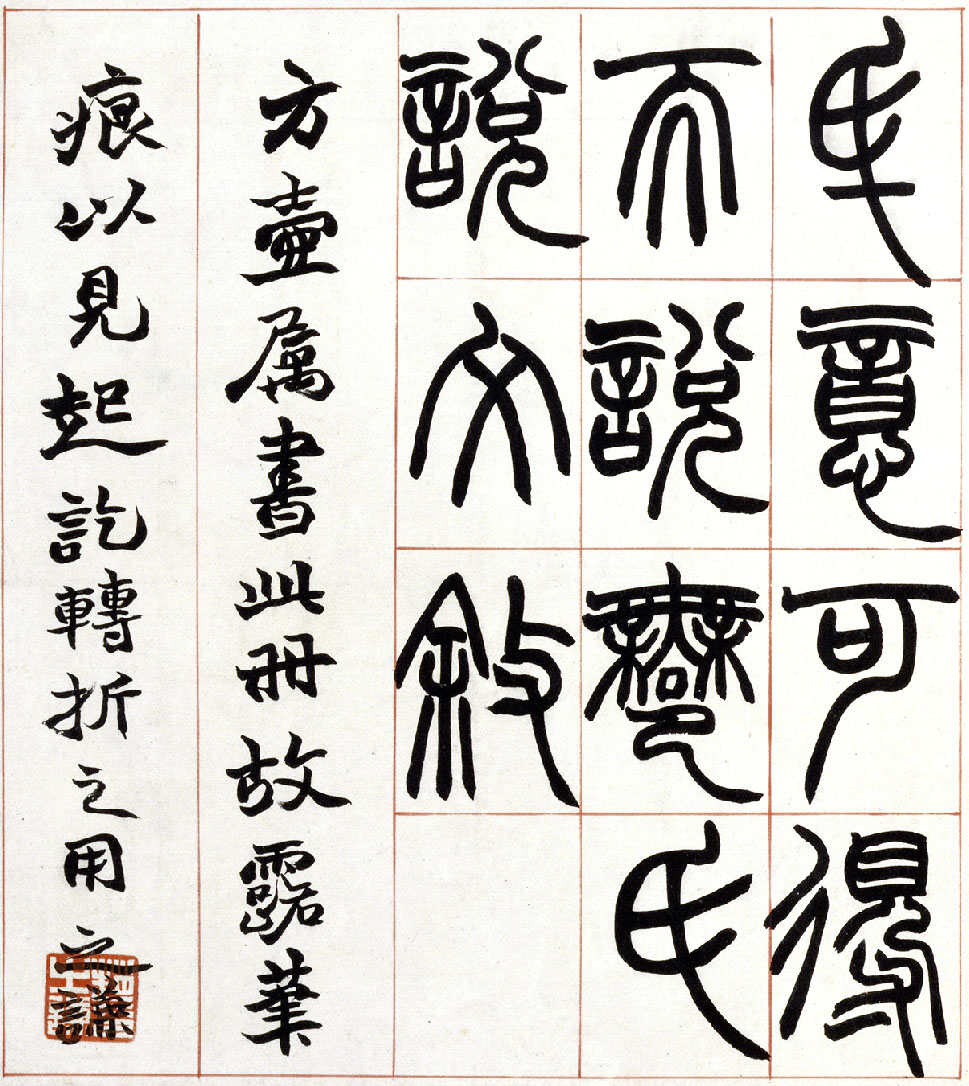 氒意可得
而說鄦氏
說文敘
方壺属書此冊故露筆
痕以見起訖轉折之用之謙